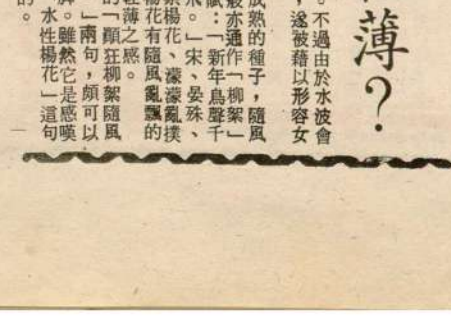 薄?
。不過由於水波會
,遂被藉以形容女
成熟的種子,隨風
般亦通作「柳絮」
賦:「新年鳥聲千
。」宋、晏殊、
楊花、濛濛亂撲
楊花有隨風亂飄的
輕薄之感。
的「顛狂柳絮隨風
」兩句,頗可以
。雖然它是感嘆
水性楊花」這句
的。